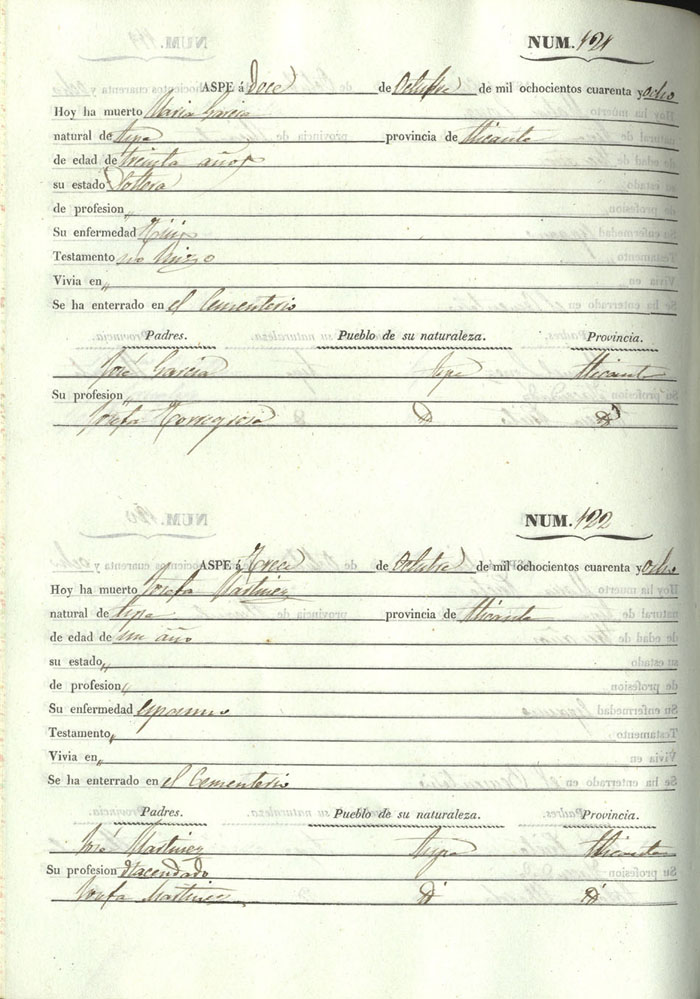 NUM. 121
ASPE á Doce de Octubre de mil ochocientos cuarenta y ocho
Hoy ha muerto Maria Garcia
natural de Aspe provincia de Alicante
de edad de treinta años
su estado Soltera
de profesion „
Su enfermedad Tisis
Testamento no hizo
Vivia en „
Se ha enterrado en el Cementerio
Padres. Pueblo de su naturaleza. Provincia.
José Garcia Aspe Alicante
Su profesion „
Josefa Torregrosa D D
NUM. 122
ASPE á Trece de Octubre de mil ochocientos cuarenta y ocho
Hoy ha muerto Josefa Martinez
natural de Aspe provincia de Alicante
de edad de un año
su estado „
de profesion „
Su enfermedad espasmo
Testamento „
Vivia en „
Se ha enterrado en el Cementerio
Padres. Pueblo de su naturaleza. Provincia.
José Martinez Aspe Alicante
Su profesion Hacendado
Josefa Martinez D D